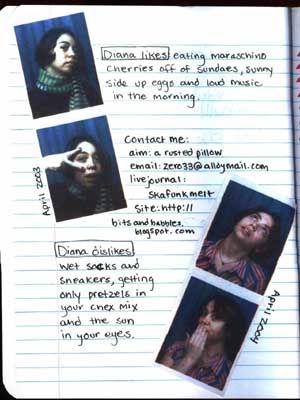 Diana likes eating maraschino
cherries off of sundaes, sunny
side up eggs and loud music
in the morning.
Contact me:
aim: a rusted pillow
email: zero33@alloymail.com
livejournal:
skafunkmelt
Site: http://
bitsandbabbles.
blogspot.com
April 2003
Diana dislikes
wet socks and
sneakers, getting
only pretzels in
your chex mix
and the sun
in your eyes.
April 2004